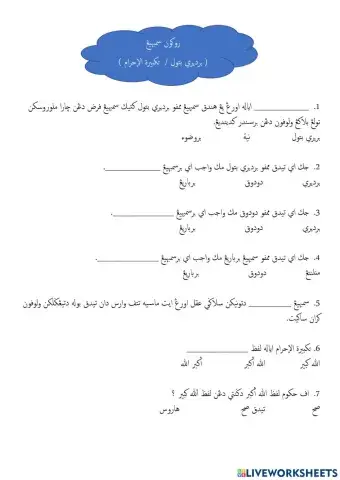 روکون سمبهيڠ
( برديري بتول / تکبيرة الإحرام )
1. ____________ اياله اورڠ يڠ هندق سمبهيڠ ممڤو برديري بتول کتيک سمبهيڠ فرض دڠن چارا ملوروسکن
تولڠ بلاکڠ ولوڤون دڠن برسندر کديندينڠ.
برديري بتول نية بروضوء
2. جک اي تيدق ممڤو برديري بتول مک واجب اي برسمبهيڠ ____________.
برديري دودوق برباريڠ
3. جک اي تيدق ممڤو دودوق مک واجب اي برسمبهيڠ ____________.
برديري دودوق برباريڠ
4. جک اي تيدق ممڤو برباريڠ مک واجب اي برسمبهيڠ ____________.
منلنتڠ دودوق برباريڠ
5. سمبهيڠ ________ دتونيکن سلاݢي عقل اورڠ ايت ماسيه تتڤ وارس دان تيدق بوله دتيڠݢلکن ولوڤون
کران ساکيت.
6. تکبيرة الإحرام اياله لفظ ____________
الله کبير الله أکبر أکبر الله
7. اڤ حکوم لفظ الله أکبر دݢنتي دڠن لفظ الله کبير ؟
صح تيدق صح هاروس
LIVEWORKSHEETS